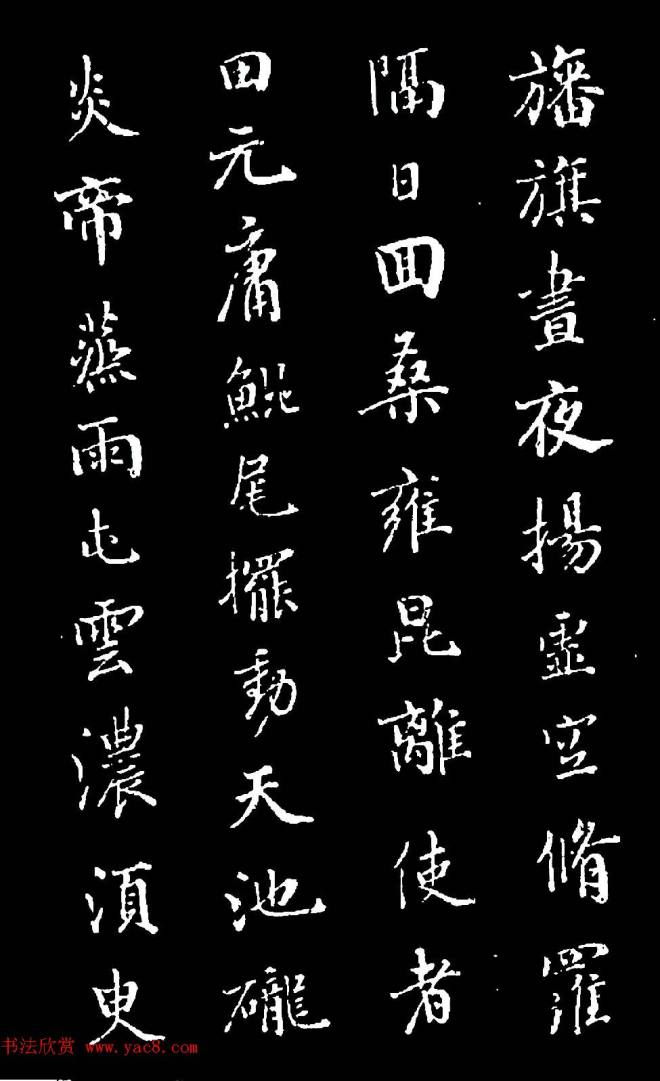 旛旗晝夜揚虛空脩羅
隔日囬桑雍昆離使者
田元庸鯤尾擺動天池礲
炎帝蒸雨屯雲濃須臾
书法欣赏 www.yac8.com